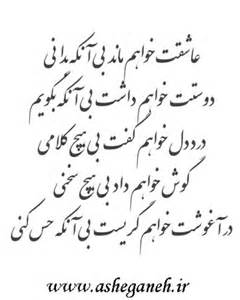 عاشقت خواهم ماند بی آنکه بدانی
دوستت خواهم داشت بی آنکه بگویم
درد دل خواهم گفت بی هیچ کلامی
گوش خواهم داد بی هیچ سخنی
در آغوشت خواهم گریست بی آنکه حس کنی
www.asheganeh.ir